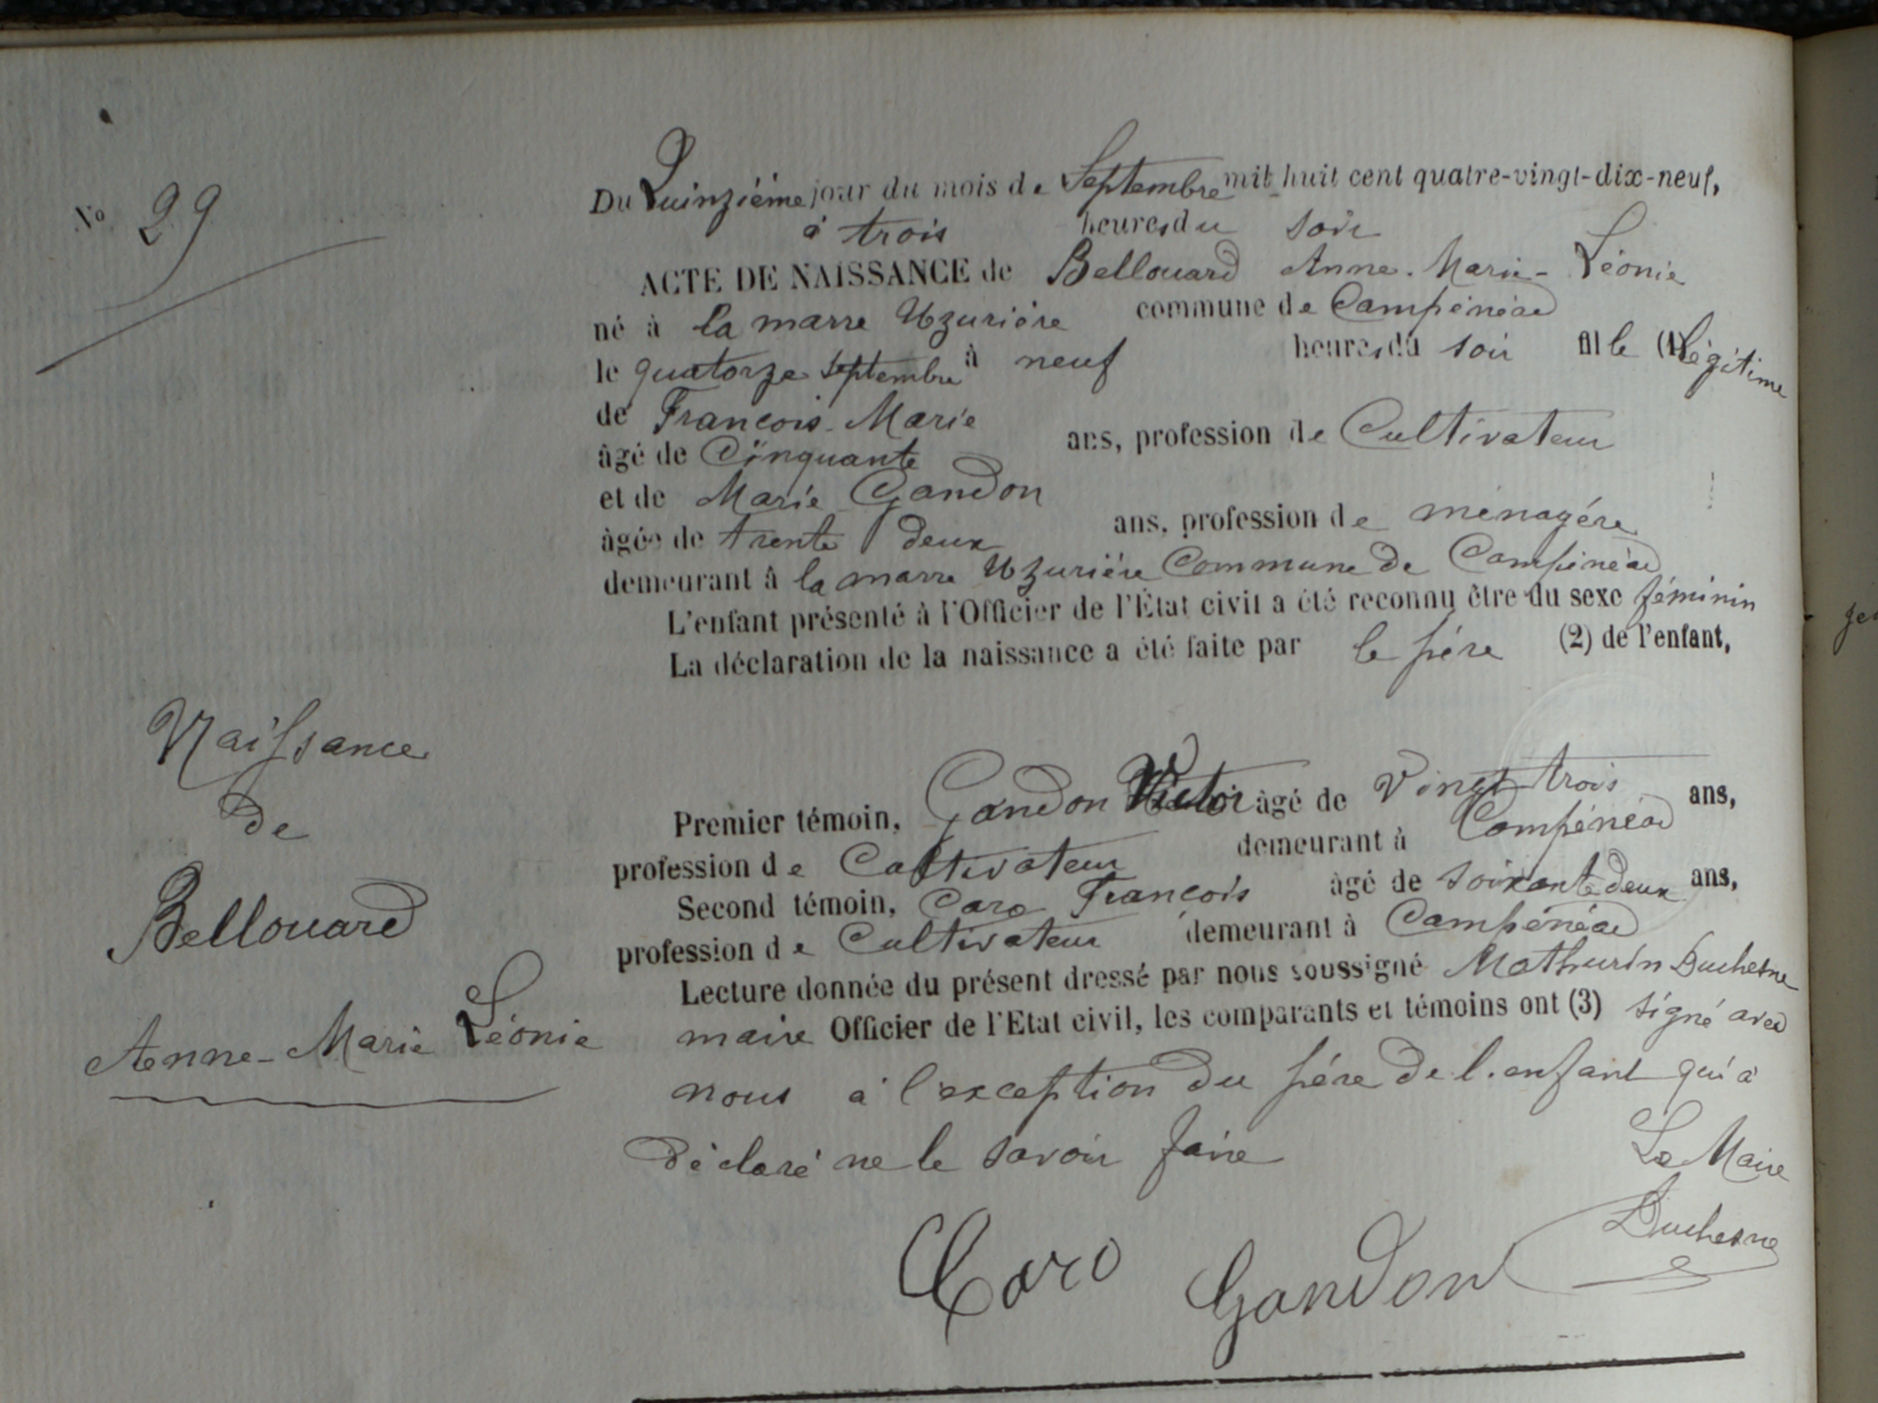 N° 29
Du Quinzième jour du mois de Septembre mil huit cent quatre-vingt-dix-neuf,
à trois heures du soir
ACTE DE NAISSANCE de Bellouard Anne-Marie-Léonie
né à la marre Uzurière commune de Campénéac
le quatorze Septembre à neuf heures du soir fille (1) légitime
de François-Marie
âgé de Cinquante ans, profession de Cultivateur
et de Marie Gandon
âgée de trente deux ans, profession de ménagère
demeurant à la marre Uzurière Commune de Campénéac
L'enfant présenté à l'Officier de l'État civil a été reconnu être du sexe féminin
La déclaration de la naissance a été faite par le père (2) de l'enfant,
Naissance
de
Bellouard
Anne-Marie Léonie
Premier témoin, Gandon Victor âgé de Vingt trois ans,
profession de Cultivateur demeurant à Campénéac
Second témoin, Caro François âgé de soixante deux ans,
profession de Cultivateur demeurant à Campénéac
Lecture donnée du présent dressé par nous soussigné Mathurin Duchesne
maire Officier de l'Etat civil, les comparants et témoins ont (3) signé avec
nous à l'exception du père de l'enfant qui a
déclaré ne le savoir faire
Le Maire
Duchesne
Caro Gandon